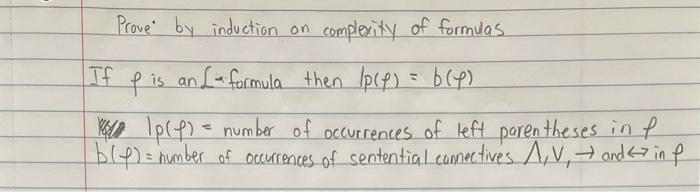 Prove: by induction on complexity of formulas
If φ is an L-formula then lp(φ) = b(φ)
lp(φ) = number of occurrences of left parentheses in φ
b(φ) = number of occurrences of sentential connectives ∧, ∨, → and ↔ in φ